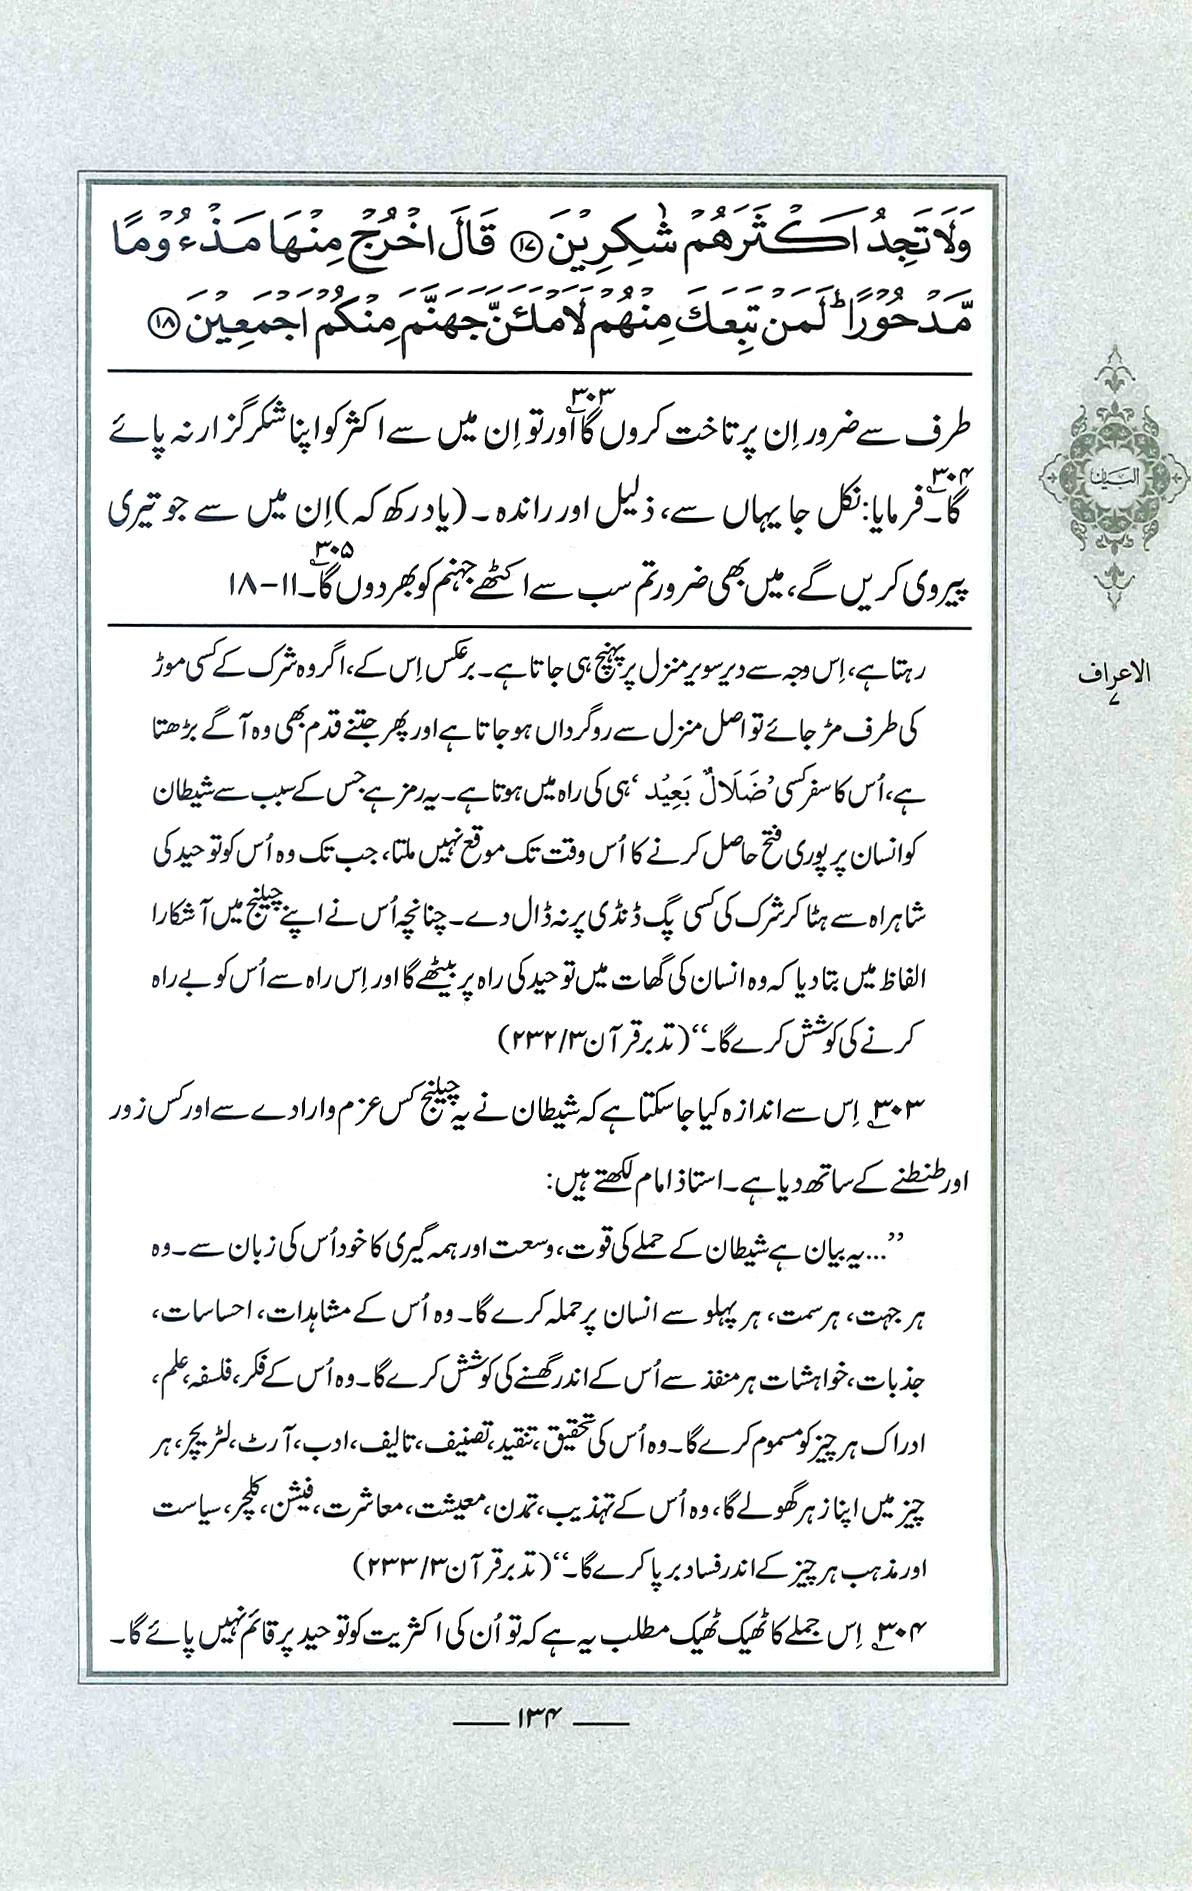 وَلَا تَجِدُ اَكْثَرَهُمْ شٰكِرِيْنَ ﴿۱۷﴾ قَالَ اخْرُجْ مِنْهَا مَذْءُوْمًا
مَّدْحُوْرًا ؕ لَمَنْ تَبِعَكَ مِنْهُمْ لَاَمْلَـَٔنَّ جَهَنَّمَ مِنْكُمْ اَجْمَعِيْنَ ﴿۱۸﴾
طرف سے ضرور اِن پر تاخت کروں گا۳۰۳ اور تو اِن میں سے اکثر کو اپنا شکر گزار نہ پائے
گا۳۰۴۔ فرمایا: نکل جا یہاں سے، ذلیل اور راندہ۔ (یاد رکھ کہ) اِن میں سے جو تیری
پیروی کریں گے، میں بھی ضرور تم سب سے اکٹھے جہنم کو بھر دوں گا۳۰۵۔ ۱۱-۱۸
رہتا ہے، اِس وجہ سے دیر سویر منزل پر پہنچ ہی جاتا ہے۔ برعکس اِس کے، اگر وہ شرک کے کسی موڑ
کی طرف مڑ جائے تو اصل منزل سے روگرداں ہو جاتا ہے اور پھر جتنے قدم بھی وہ آگے بڑھتا
ہے، اُس کا سفر کسی ’ضَلَالٌ بَعِيْد‘ ہی کی راہ میں ہوتا ہے۔ یہ رمز ہے جس کے سبب سے شیطان
کو انسان پر پوری فتح حاصل کرنے کا اُس وقت تک موقع نہیں ملتا، جب تک وہ اُس کو توحید کی
شاہراہ سے ہٹا کر شرک کی کسی پگ ڈنڈی پر نہ ڈال دے۔ چنانچہ اُس نے اپنے چیلنج میں آشکارا
الفاظ میں بتا دیا کہ وہ انسان کی گھات میں توحید کی راہ پر بیٹھے گا اور اِس راہ سے اُس کو بے راہ
کرنے کی کوشش کرے گا۔‘‘ (تدبر قرآن ۳/ ۲۳۲)
۳۰۳ اِس سے اندازہ کیا جا سکتا ہے کہ شیطان نے یہ چیلنج کس عزم و ارادے سے اور کس زور
اور طنطنے کے ساتھ دیا ہے۔ استاذ امام لکھتے ہیں:
’’...یہ بیان ہے شیطان کے حملے کی قوت، وسعت اور ہمہ گیری کا خود اُس کی زبان سے۔ وہ
ہر جہت، ہر سمت، ہر پہلو سے انسان پر حملہ کرے گا۔ وہ اُس کے مشاہدات، احساسات،
جذبات، خواہشات ہر منفذ سے اُس کے اندر گھسنے کی کوشش کرے گا۔ وہ اُس کے فکر، فلسفہ، علم،
ادراک ہر چیز کو مسموم کرے گا۔ وہ اُس کی تحقیق، تنقید، تصنیف، تالیف، ادب، آرٹ، لٹریچر، ہر
چیز میں اپنا زہر گھولے گا، وہ اُس کے تہذیب، تمدن، معیشت، معاشرت، فیشن، کلچر، سیاست
اور مذہب ہر چیز کے اندر فساد برپا کرے گا۔‘‘ (تدبر قرآن ۳/ ۲۳۳)
۳۰۴ اِس جملے کا ٹھیک ٹھیک مطلب یہ ہے کہ تو اُن کی اکثریت کو توحید پر قائم نہیں پائے گا۔
البیان
الاعراف
۷
۱۳۴